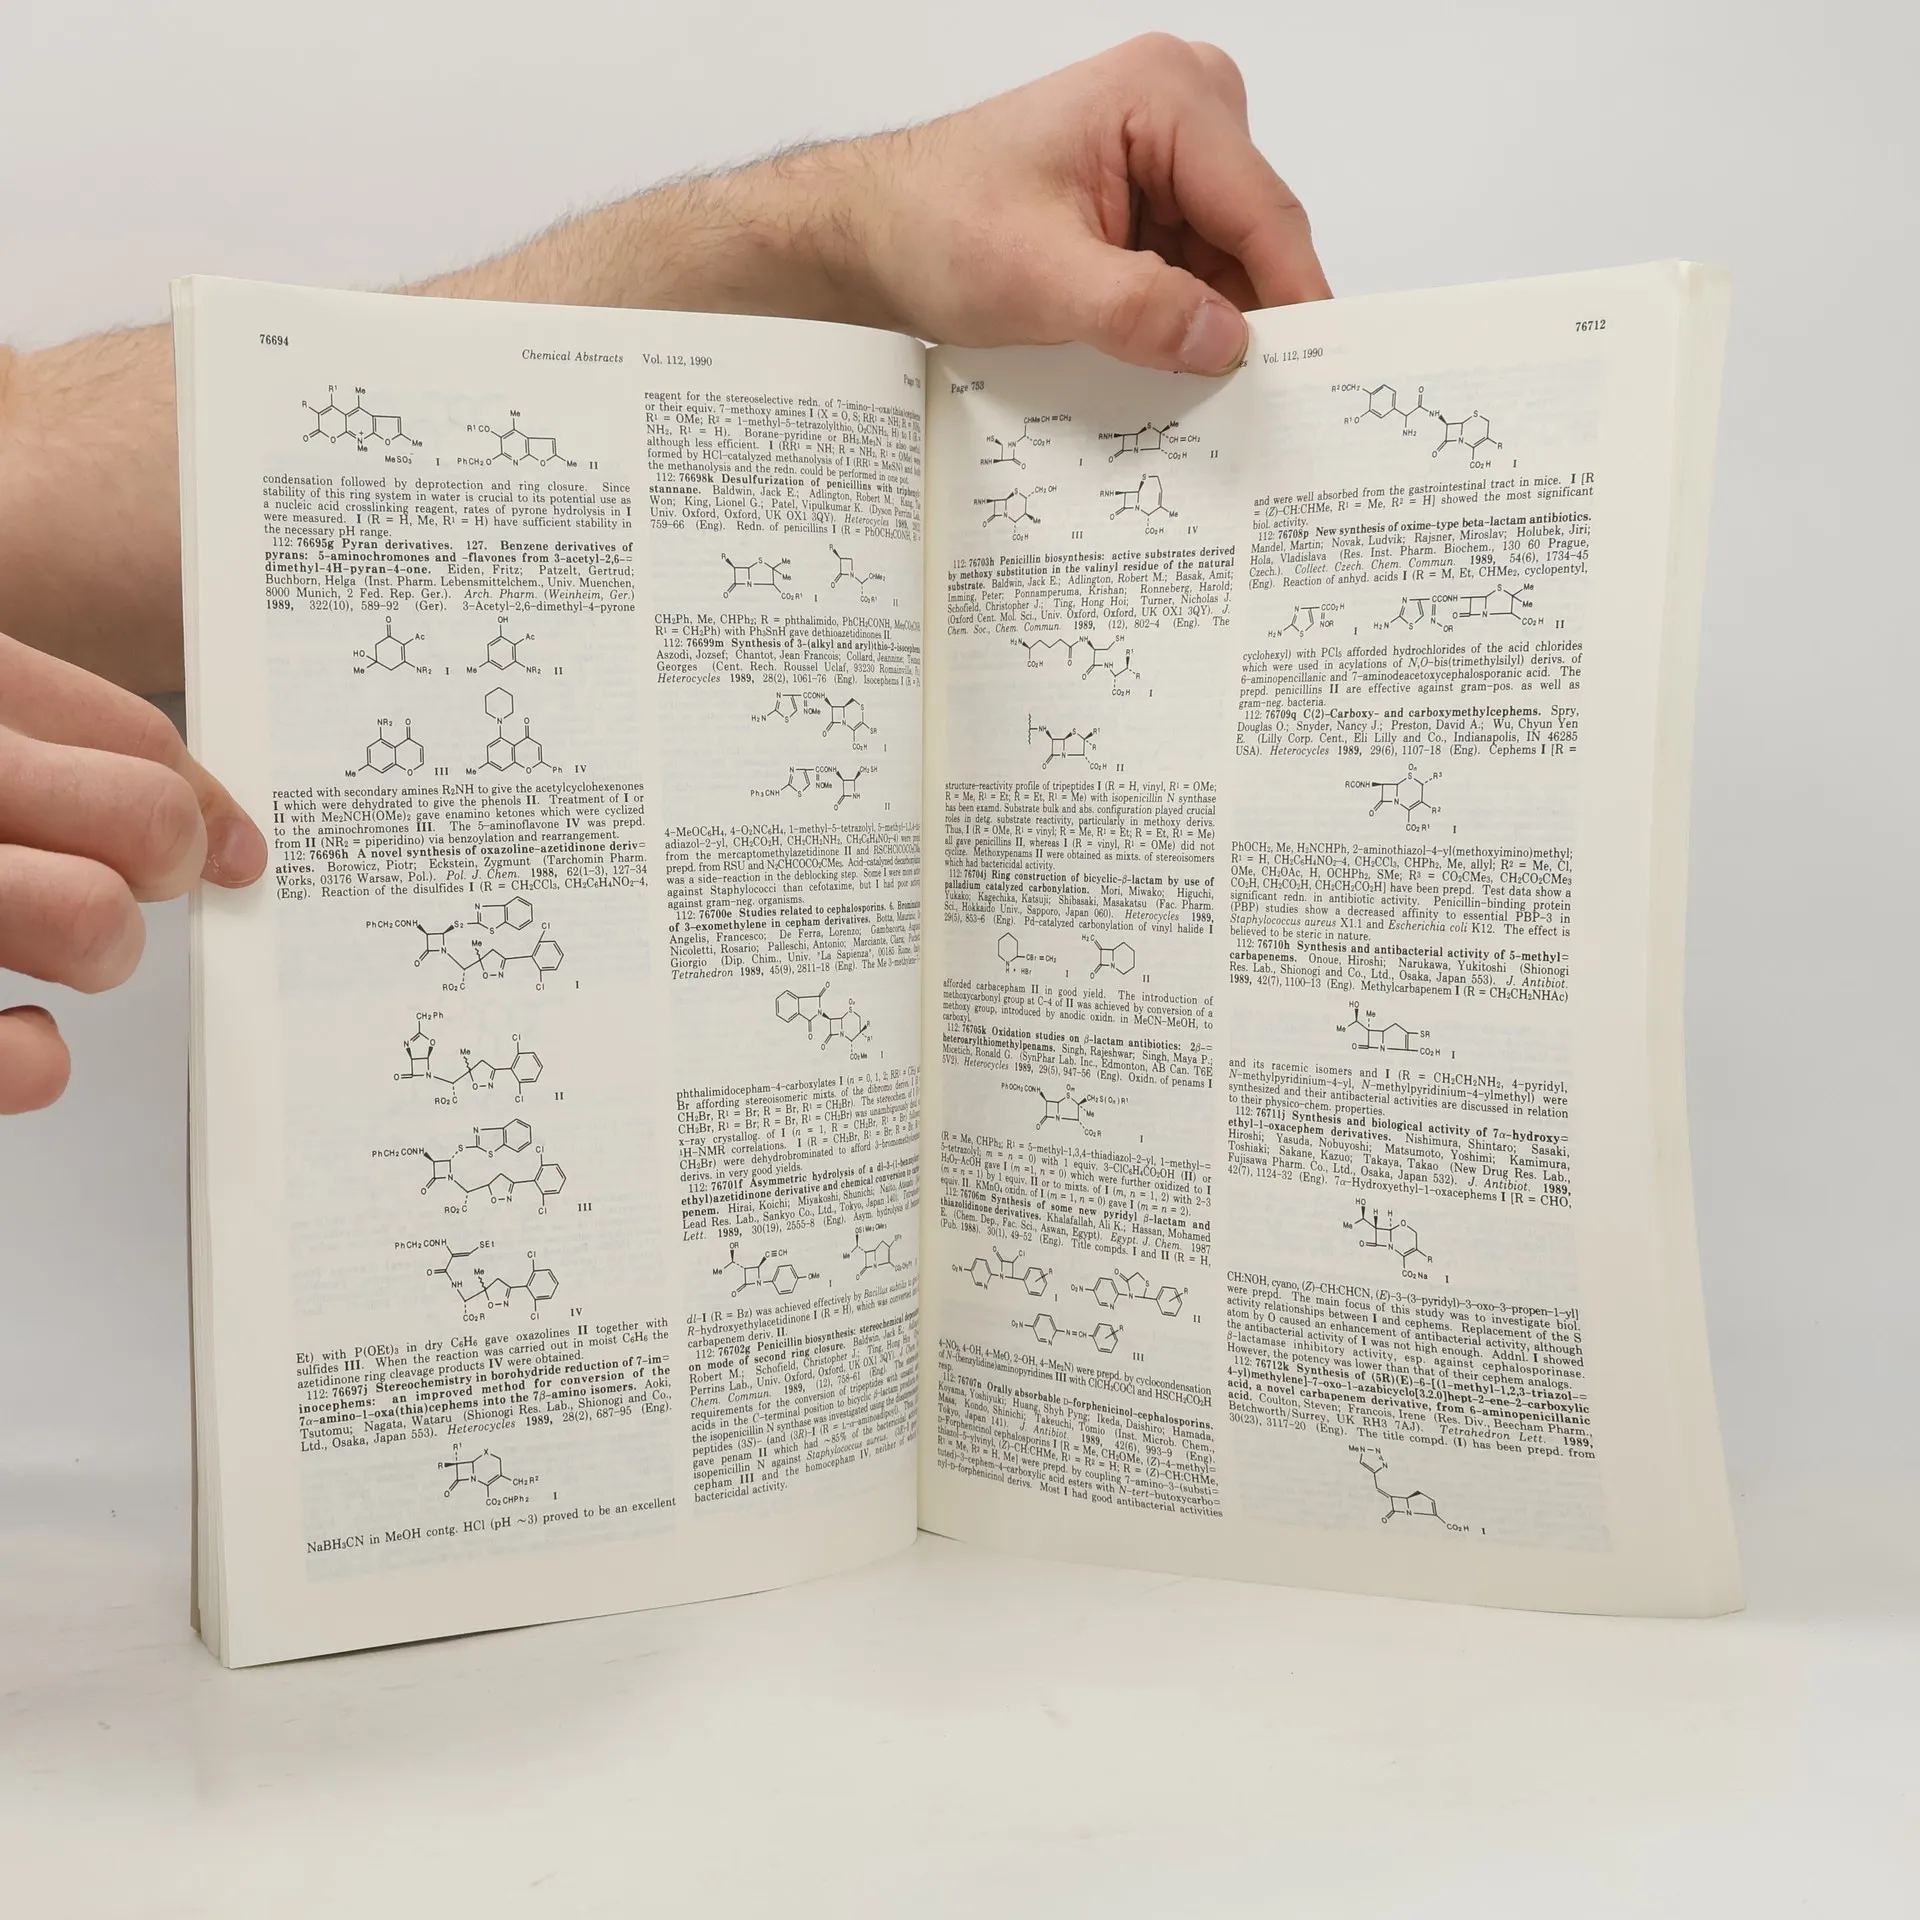 76694
Chemical Abstracts Vol. 112, 1990
condensation followed by deprotection and ring closure. Since
stability of this ring system in water is crucial to its potential use as
a nucleic acid crosslinking reagent, rates of pyrone hydrolysis in I
were measured. I (R = H, Me, R¹ = H) have sufficient stability in
the necessary pH range.
112: 76695g Pyran derivatives. 127. Benzene derivatives of
pyrans: 5-aminochromones and -flavones from 3-acetyl-2,6-=
dimethyl-4H-pyran-4-one. Eiden, Fritz; Patzelt, Gertrud;
Buchborn, Helga (Inst. Pharm. Lebensmittelchem., Univ. Muenchen,
8000 Munich, 2 Fed. Rep. Ger.). Arch. Pharm. (Weinheim, Ger.)
1989, 322(10), 589-92 (Ger). 3-Acetyl-2,6-dimethyl-4-pyrone
reacted with secondary amines R₂NH to give the acetylcyclohexenones
I which were dehydrated to give the phenols II. Treatment of I or
II with Me₂NCH(OMe)₂ gave enamino ketones which were cyclized
to the aminochromones III. The 5-aminoflavone IV was prepd.
from II (NR₂ = piperidino) via benzoylation and rearrangement.
112: 76696h A novel synthesis of oxazoline-azetidinone deriv=
atives. Borowicz, Piotr; Eckstein, Zygmunt (Tarchomin Pharm.
Works, 03176 Warsaw, Pol.). Pol. J. Chem. 1988, 62(1-3), 127-34
(Eng). Reaction of the disulfides I (R = CH₂CCl₃, CH₂C₆H₄NO₂-4,
Et) with P(OEt)₃ in dry C₆H₆ gave oxazolines II together with
sulfides III. When the reaction was carried out in moist C₆H₆ the
azetidinone ring cleavage products IV were obtained.
112: 76697j Stereochemistry in borohydride reduction of 7-im=
inocephems: an improved method for conversion of the
7α-amino-1-oxa(thia)cephems into the 7β-amino isomers. Aoki,
Tsutomu; Nagata, Wataru (Shionogi Res. Lab., Shionogi and Co.,
Ltd., Osaka, Japan 553). Heterocycles 1989, 28(2), 687-95 (Eng).
NaBH₃CN in MeOH contg. HCl (pH ~3) proved to be an excellent
reagent for the stereoselective redn. of 7-imino-1-oxa(thia)cephems
or their equiv. 7-methoxy amines I (X = O, S; RR¹ = NH; R = NH₂,
R¹ = OMe; R² = 1-methyl-5-tetrazolylthio, O₂CNH₂, H) to I (R =
NH₂, R¹ = H). Borane-pyridine or BH₃.Me₃N is also useful
although less efficient. I (RR¹ = NH; R = NH₂, R¹ = OMe) were
formed by HCl-catalyzed methanolysis of I (RR¹ = MeSN) and both
the methanolysis and the redn. could be performed in one pot.
112: 76698k Desulfurization of penicillins with triphenyl=
stannane. Baldwin, Jack E.; Adlington, Robert M.; Kang, Tae
Won; King, Lionel G.; Patel, Vipulkumar K. (Dyson Perrins Lab.,
Univ. Oxford, Oxford, UK OX1 3QY). Heterocycles 1989,
759-66 (Eng). Redn. of penicillins I (R = PhOCH₂CONH, R¹ =
CH₂Ph, Me, CHPh₂; R = phthalimido, PhCH₂CONH,
R¹ = CH₂Ph) with Ph₃SnH gave dethioazetidinones II.
112: 76699m Synthesis of 3-(alkyl and aryl)thio-2-isocephems.
Aszodi, Jozsef; Chantot, Jean Francois; Collard, Jeannine;
Georges (Cent. Rech. Roussel Uclaf, 93230 Romainville,
Heterocycles 1989, 28(2), 1061-76 (Eng). Isocephems I (R =
4-MeOC₆H₄, 4-O₂NC₆H₄, 1-methyl-5-tetrazolyl,
adiazol-2-yl, CH₂CO₂H, CH₂CH₂NH₂, CH₂C₆H₄NO₂-4) were
from the mercaptomethylazetidinone II and
prepd. from RSU and N₂CHCOCO₂CMe₃. Acid-catalyzed
was a side-reaction in the deblocking step. Some I were more
against Staphylococci than cefotaxime, but I had poor
against gram-neg. organisms.
112: 76700e Studies related to cephalosporins. 6.
of 3-exomethylene in cepham derivatives. Botta, Maurizio;
Angelis, Francesco; De Ferra, Lorenzo; Gambacorta,
Nicoletti, Rosario; Palleschi, Antonio; Marciante, Clara;
Giorgio (Dip. Chim., Univ. "La Sapienza", 00185 Rome,
Tetrahedron 1989, 45(9), 2811-18 (Eng). The Me 3-methylene-7-
phthalimidocepham-4-carboxylates I (n = 0, 1, 2;
Br affording stereoisomeric mixts. of the dibromo deriv.
CH₂Br, R¹ = Br; R = Br, R¹ = CH₂Br). The stereochem. of
CH₂Br, R¹ = Br; R = Br, R¹ = CH₂Br) was unambiguously
x-ray crystallog. of I (n = 1, R = CH₂Br, R¹ = Br)
¹H-NMR correlations. I (R = CH₂Br, R¹ = Br;
CH₂Br) were dehydrobrominated to afford
derivs. in very good yields.
112: 76701f Asymmetric hydrolysis of a dl-3-(1-
ethyl)azetidinone derivative and chemical conversion to
penem. Hirai, Koichi; Miyakoshi, Shunichi; Naito,
Lead Res. Lab., Sankyo Co., Ltd., Tokyo, Japan 140).
Lett. 1989, 30(19), 2555-8 (Eng). Asym. hydrolysis of
dl-I (R = Bz) was achieved effectively by Bacillus subtilis
R-hydroxyethylacetidinone I (R = H), which was converted
carbapenem deriv. II.
112: 76702g Penicillin biosynthesis: stereochemical
on mode of second ring closure. Baldwin, Jack E.;
Robert M.; Schofield, Christopher J.; Ting, Hong
Perrins Lab., Univ. Oxford, Oxford, UK OX1 3QY). J. Chem.
Chem. Commun. 1989, (12), 758-61 (Eng). The
requirements for the conversion of tripeptides with
acids in the C-terminal position to bicyclic β-lactam
the isopenicillin N synthase was investigated using the
peptides (3S)- and (3R)-I (R = L-α-aminoadipoyl).
gave penam II which had ~85% of the bactericidal
isopenicillin N against Staphylococcus aureus.
cepham III and the homocepham IV, neither of
bactericidal activity.
Page 753
Vol. 112, 1990
76712
112: 76703h Penicillin biosynthesis: active substrates derived
by methoxy substitution in the valinyl residue of the natural
substrate. Baldwin, Jack E.; Adlington, Robert M.; Basak, Amit;
Imming, Peter; Ponnamperuma, Krishan; Ronneberg, Harold;
Schofield, Christopher J.; Ting, Hong Hoi; Turner, Nicholas J.
(Oxford Cent. Mol. Sci., Univ. Oxford, Oxford, UK OX1 3QY). J.
Chem. Soc., Chem. Commun. 1989, (12), 802-4 (Eng). The
structure-reactivity profile of tripeptides I (R = H, vinyl, R¹ = OMe;
R = Me, R¹ = Et; R = Et, R¹ = Me) with isopenicillin N synthase
has been examd. Substrate bulk and abs. configuration played crucial
roles in detg. substrate reactivity, particularly in methoxy derivs.
Thus, I (R = OMe, R¹ = vinyl; R = Me, R¹ = Et; R = Et, R¹ = Me)
all gave penicillins II, whereas I (R = vinyl, R¹ = OMe) did not
cyclize. Methoxypenams II were obtained as mixts. of stereoisomers
which had bactericidal activity.
112: 76704j Ring construction of bicyclic-β-lactam by use of
palladium catalyzed carbonylation. Mori, Miwako; Higuchi,
Yukako; Kagechika, Katsuji; Shibasaki, Masakatsu (Fac. Pharm.
Sci., Hokkaido Univ., Sapporo, Japan 060). Heterocycles 1989,
29(5), 853-6 (Eng). Pd-catalyzed carbonylation of vinyl halide I
afforded carbacepham II in good yield. The introduction of
methoxycarbonyl group at C-4 of II was achieved by conversion of a
methoxy group, introduced by anodic oxidn. in MeCN-MeOH, to
carboxyl.
112: 76705k Oxidation studies on β-lactam antibiotics: 2β-=
heteroarylthiomethylpenams. Singh, Rajeshwar; Singh, Maya P.;
Micetich, Ronald G. (SynPhar Lab. Inc., Edmonton, AB Can. T6E
5V2). Heterocycles 1989, 29(5), 947-56 (Eng). Oxidn. of penams I
(R = Me, CHPh₂; R¹ = 5-methyl-1,3,4-thiadiazol-2-yl, 1-methyl-=
5-tetrazolyl; m = n = 0) with 1 equiv. 3-ClC₆H₄CO₂OH (II) or
H₂O₂-AcOH gave I (m =1, n = 0) which were further oxidized to I
(m = n = 1) by 1 equiv. II or to mixts. of I (m, n = 1, 2) with 2-3
equiv. II. KMnO₄ oxidn. of I (m = 1, n = 0) gave I (m = n = 2).
112: 76706m Synthesis of some new pyridyl β-lactam and
thiazolidinone derivatives. Khalafallah, Ali K.; Hassan, Mohamed
E. (Chem. Dep., Fac. Sci., Aswan, Egypt). Egypt. J. Chem. 1987
(Pub. 1988). 30(1), 49-52 (Eng). Title compds. I and II (R = H,
4-NO₂, 4-OH, 4-MeO, 2-OH, 4-Me₂N) were prepd. by cyclocondensation
of N-(benzylidine)aminopyridines III with ClCH₂COCl and HSCH₂CO₂H
resp.
112: 76707n Orally absorbable D-forphenicinol-cephalosporins.
Koyama, Yoshiyuki; Huang, Shyh Pyng; Ikeda, Daishiro; Hamada,
Masa; Kondo, Shinichi; Takeuchi, Tomio (Inst. Microb. Chem.,
Tokyo, Japan 141). J. Antibiot. 1989, 42(6), 993-9 (Eng).
D-Forphenicinol cephalosporins I [R = Me, CH₂OMe, (Z)-4-methyl=
thiazol-5-ylvinyl, (Z)-CH:CHMe, R¹ = R² = H; R = (Z)-CH:CHMe,
R¹ = Me, R² = H, Me] were prepd. by coupling 7-amino-3-(substi=
tuted)-3-cephem-4-carboxylic acid esters with N-tert-butoxycarbo=
nyl-D-forphenicinol derivs. Most I had good antibacterial activities
and were well absorbed from the gastrointestinal tract in mice. I [R
= (Z)-CH:CHMe, R¹ = Me, R² = H] showed the most significant
biol. activity.
112: 76708p New synthesis of oxime-type beta-lactam antibiotics.
Mandel, Martin; Novak, Ludvik; Rajsner, Miroslav; Holubek, Jiri;
Hola, Vladislava (Res. Inst. Pharm. Biochem., 130 60 Prague,
Czech.). Collect. Czech. Chem. Commun. 1989, 54(6), 1734-45
(Eng). Reaction of anhyd. acids I (R = M, Et, CHMe₂, cyclopentyl,
cyclohexyl) with PCl₅ afforded hydrochlorides of the acid chlorides
which were used in acylations of N,O-bis(trimethylsilyl) derivs. of
6-aminopencillanic and 7-aminodeacetoxycephalosporanic acid. The
prepd. penicillins II are effective against gram-pos. as well as
gram-neg. bacteria.
112: 76709q C(2)-Carboxy- and carboxymethylcephems. Spry,
Douglas O.; Snyder, Nancy J.; Preston, David A.; Wu, Chyun Yen
E. (Lilly Corp. Cent., Eli Lilly and Co., Indianapolis, IN 46285
USA). Heterocycles 1989, 29(6), 1107-18 (Eng). Cephems I [R =
PhOCH₂, Me, H₂NCHPh, 2-aminothiazol-4-yl(methoxyimino)methyl;
R¹ = H, CH₂C₆H₄NO₂-4, CH₂CCl₃, CHPh₂, Me, allyl; R² = Me, Cl,
OMe, CH₂OAc, H, OCHPh₂, SMe; R³ = CO₂CMe₃, CH₂CO₂CMe₃
CO₂H, CH₂CO₂H, CH₂CH₂CO₂H] have been prepd. Test data show a
significant redn. in antibiotic activity. Penicillin-binding protein
(PBP) studies show a decreased affinity to essential PBP-3 in
Staphylococcus aureus X1.1 and Escherichia coli K12. The effect is
believed to be steric in nature.
112: 76710h Synthesis and antibacterial activity of 5-methyl=
carbapenems. Onoue, Hiroshi; Narukawa, Yukitoshi (Shionogi
Res. Lab., Shionogi and Co., Ltd., Osaka, Japan 553). J. Antibiot.
1989, 42(7), 1100-13 (Eng). Methylcarbapenem I (R = CH₂CH₂NHAc)
and its racemic isomers and I (R = CH₂CH₂NH₂, 4-pyridyl,
N-methylpyridinium-4-yl, N-methylpyridinium-4-ylmethyl) were
synthesized and their antibacterial activities are discussed in relation
to their physico-chem. properties.
112: 76711j Synthesis and biological activity of 7α-hydroxy=
ethyl-1-oxacephem derivatives. Nishimura, Shintaro; Sasaki,
Hiroshi; Yasuda, Nobuyoshi; Matsumoto, Yoshimi; Kamimura,
Toshiaki; Sakane, Kazuo; Takaya, Takao (New Drug Res. Lab.,
Fujisawa Pharm. Co., Ltd., Osaka, Japan 532). J. Antibiot. 1989,
42(7), 1124-32 (Eng). 7α-Hydroxyethyl-1-oxacephems I [R = CHO,
CH:NOH, cyano, (Z)-CH:CHCN, (E)-3-(3-pyridyl)-3-oxo-3-propen-1-yl]
were prepd. The main focus of this study was to investigate biol.
activity relationships between I and cephems. Replacement of the S
atom by O caused an enhancement of antibacterial activity, although
the antibacterial activity of I was not high enough. Addnl. I showed
β-lactamase inhibitory activity, esp. against cephalosporinase.
However, the potency was lower than that of their cephem analogs.
112: 76712k Synthesis of (5R)(E)-6-[(1-methyl-1,2,3-triazol-=
4-yl)methylene]-7-oxo-1-azabicyclo[3.2.0]hept-2-ene-2-carboxylic
acid, a novel carbapenem derivative, from 6-aminopenicillanic
acid. Coulton, Steven; Francois, Irene (Res. Div., Beecham Pharm.,
Betchworth/Surrey, UK RH3 7AJ). Tetrahedron Lett. 1989,
30(23), 3117-20 (Eng). The title compd. (I) has been prepd. from